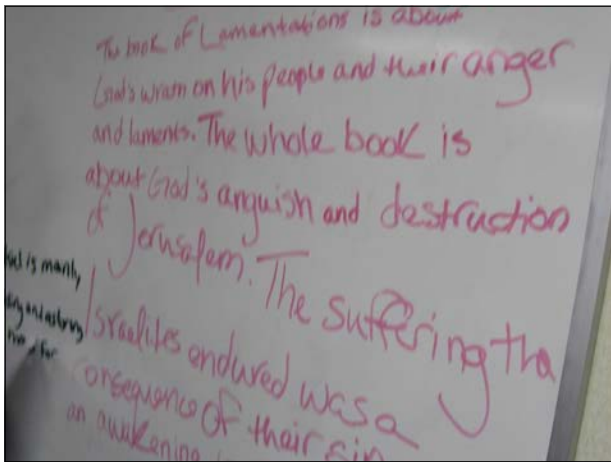 The book of Lamentations is about
God's wrath on his people and their anger
and laments. The whole book is
about God's anguish and destruction
of Jerusalem. The suffering tha
Israelites endured was a
consequence of their sin
an awakening
is manly,